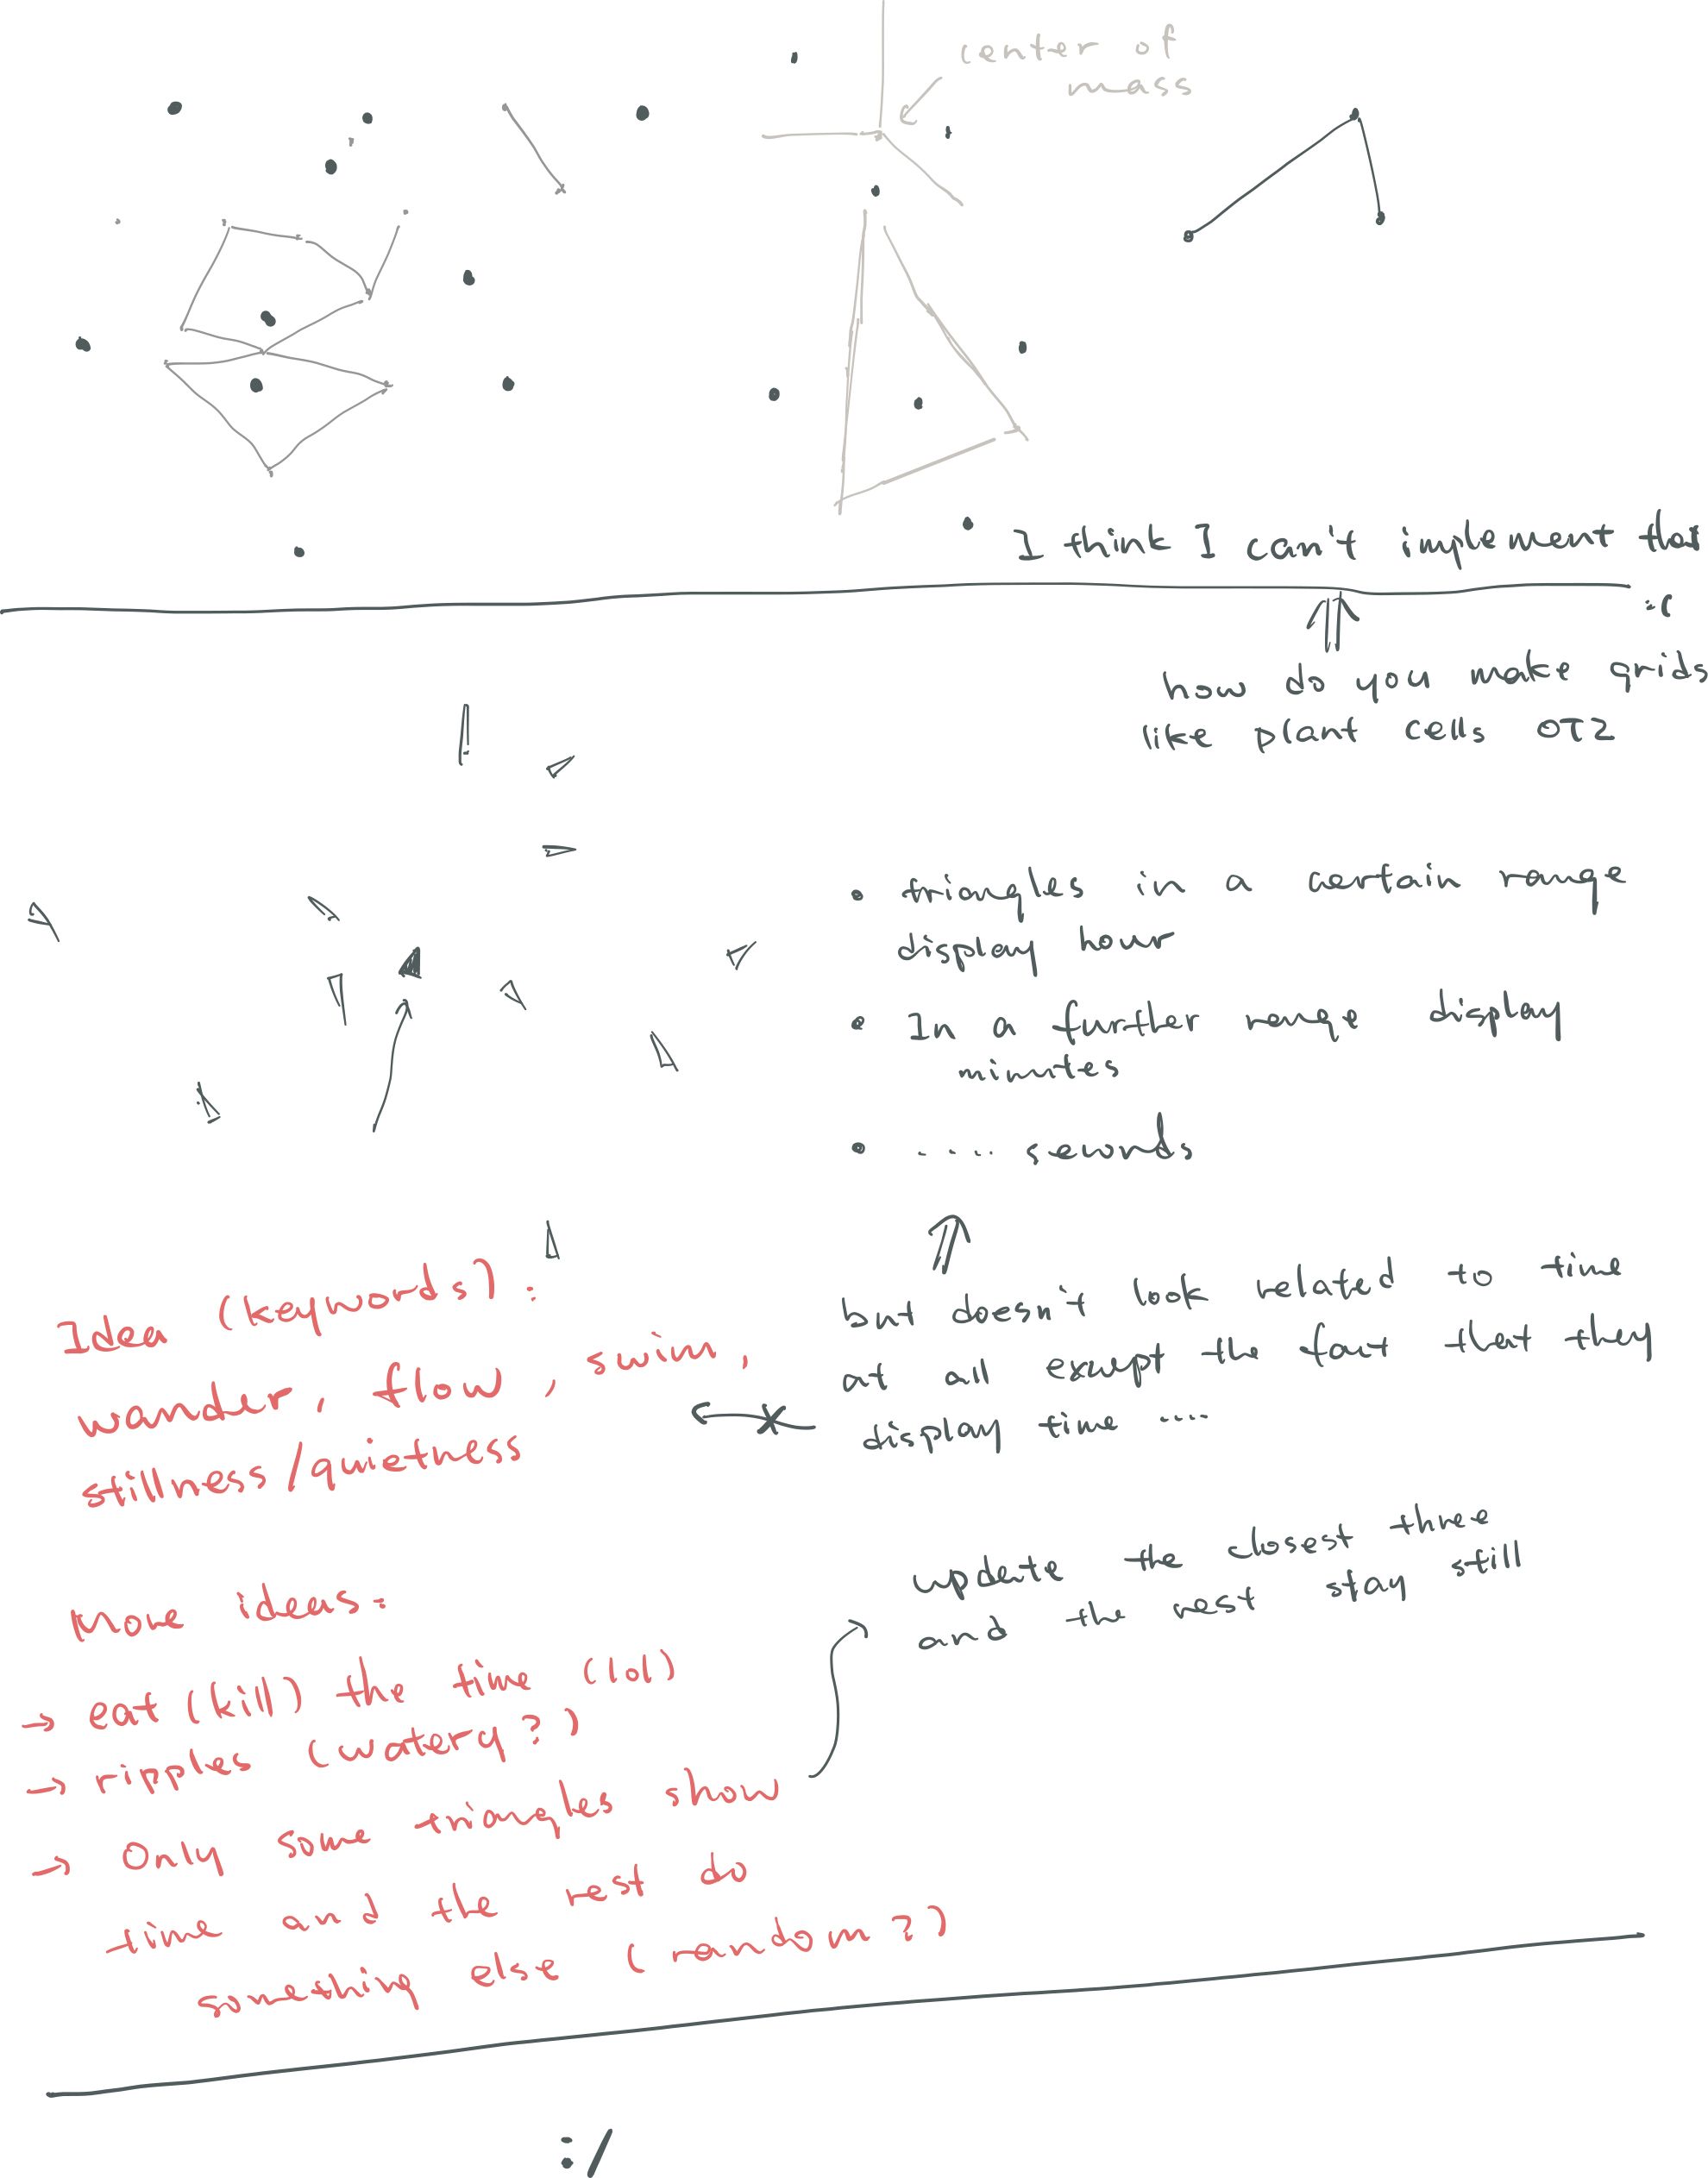 center of
mass
I think I can't implement that
:(
how do you make grids
like plant cells OTZ
• triangles in a certain range
display hour
• In a further range display
minutes
• .... seconds
but doesn't look related to time
at all except the fact that they
display time ....
Idea (keywords):
wander, flow, swim,
stillness/quietness
update the closest three
and the rest stay still
More ideas:
→ eat (kill) the time (lol)
→ ripples (watery?)
→ Only some triangles show
time and the rest do
something else (random?)
:/